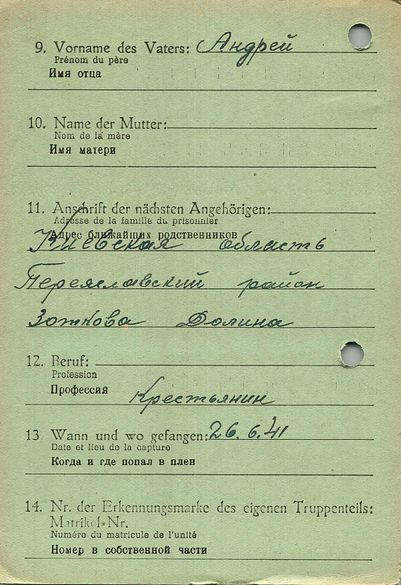 9. Vorname des Vaters: Андрей
Prénom du père
Имя отца
10. Name der Mutter:
Nom de la mère
Имя матери
11. Anschrift der nächsten Angehörigen:
Adresse de la famille du prisonnier
Адрес ближайших родственников
Киевская область
Переяславский район
Зоткова Долина
12. Beruf:
Profession
Профессия
Крестьянин
13 Wann und wo gefangen: 26.6.41
Date et lieu de la capture
Когда и где попал в плен
14. Nr. der Erkennungsmarke des eigenen Truppenteils:
Matrikel-Nr.
Numéro du matricule de l'unité
Номер в собственной части